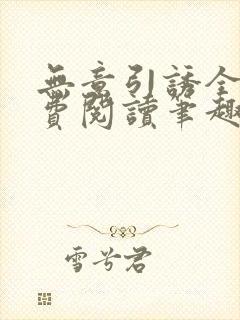 無意引誘全
費閱讀筆趣
雪兮君